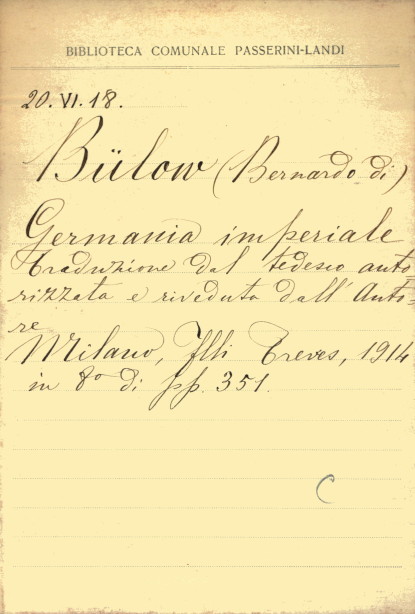 BIBLIOTECA COMUNALE PASSERINI-LANDI
20.VI.18.
Bülow (Bernardo di)
Germania imperiale
Traduzione dal tedesco auto
rizzata e riveduta dall'Auto=
re
Milano, Flli Treves, 1914
in 8º di pp. 351.
C